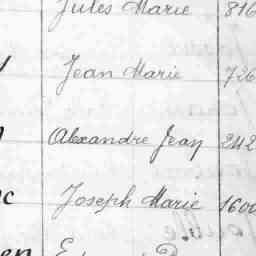 Jules Marie 816
Jean Marie 726
Alexandre Jean 242
Joseph Marie 1600